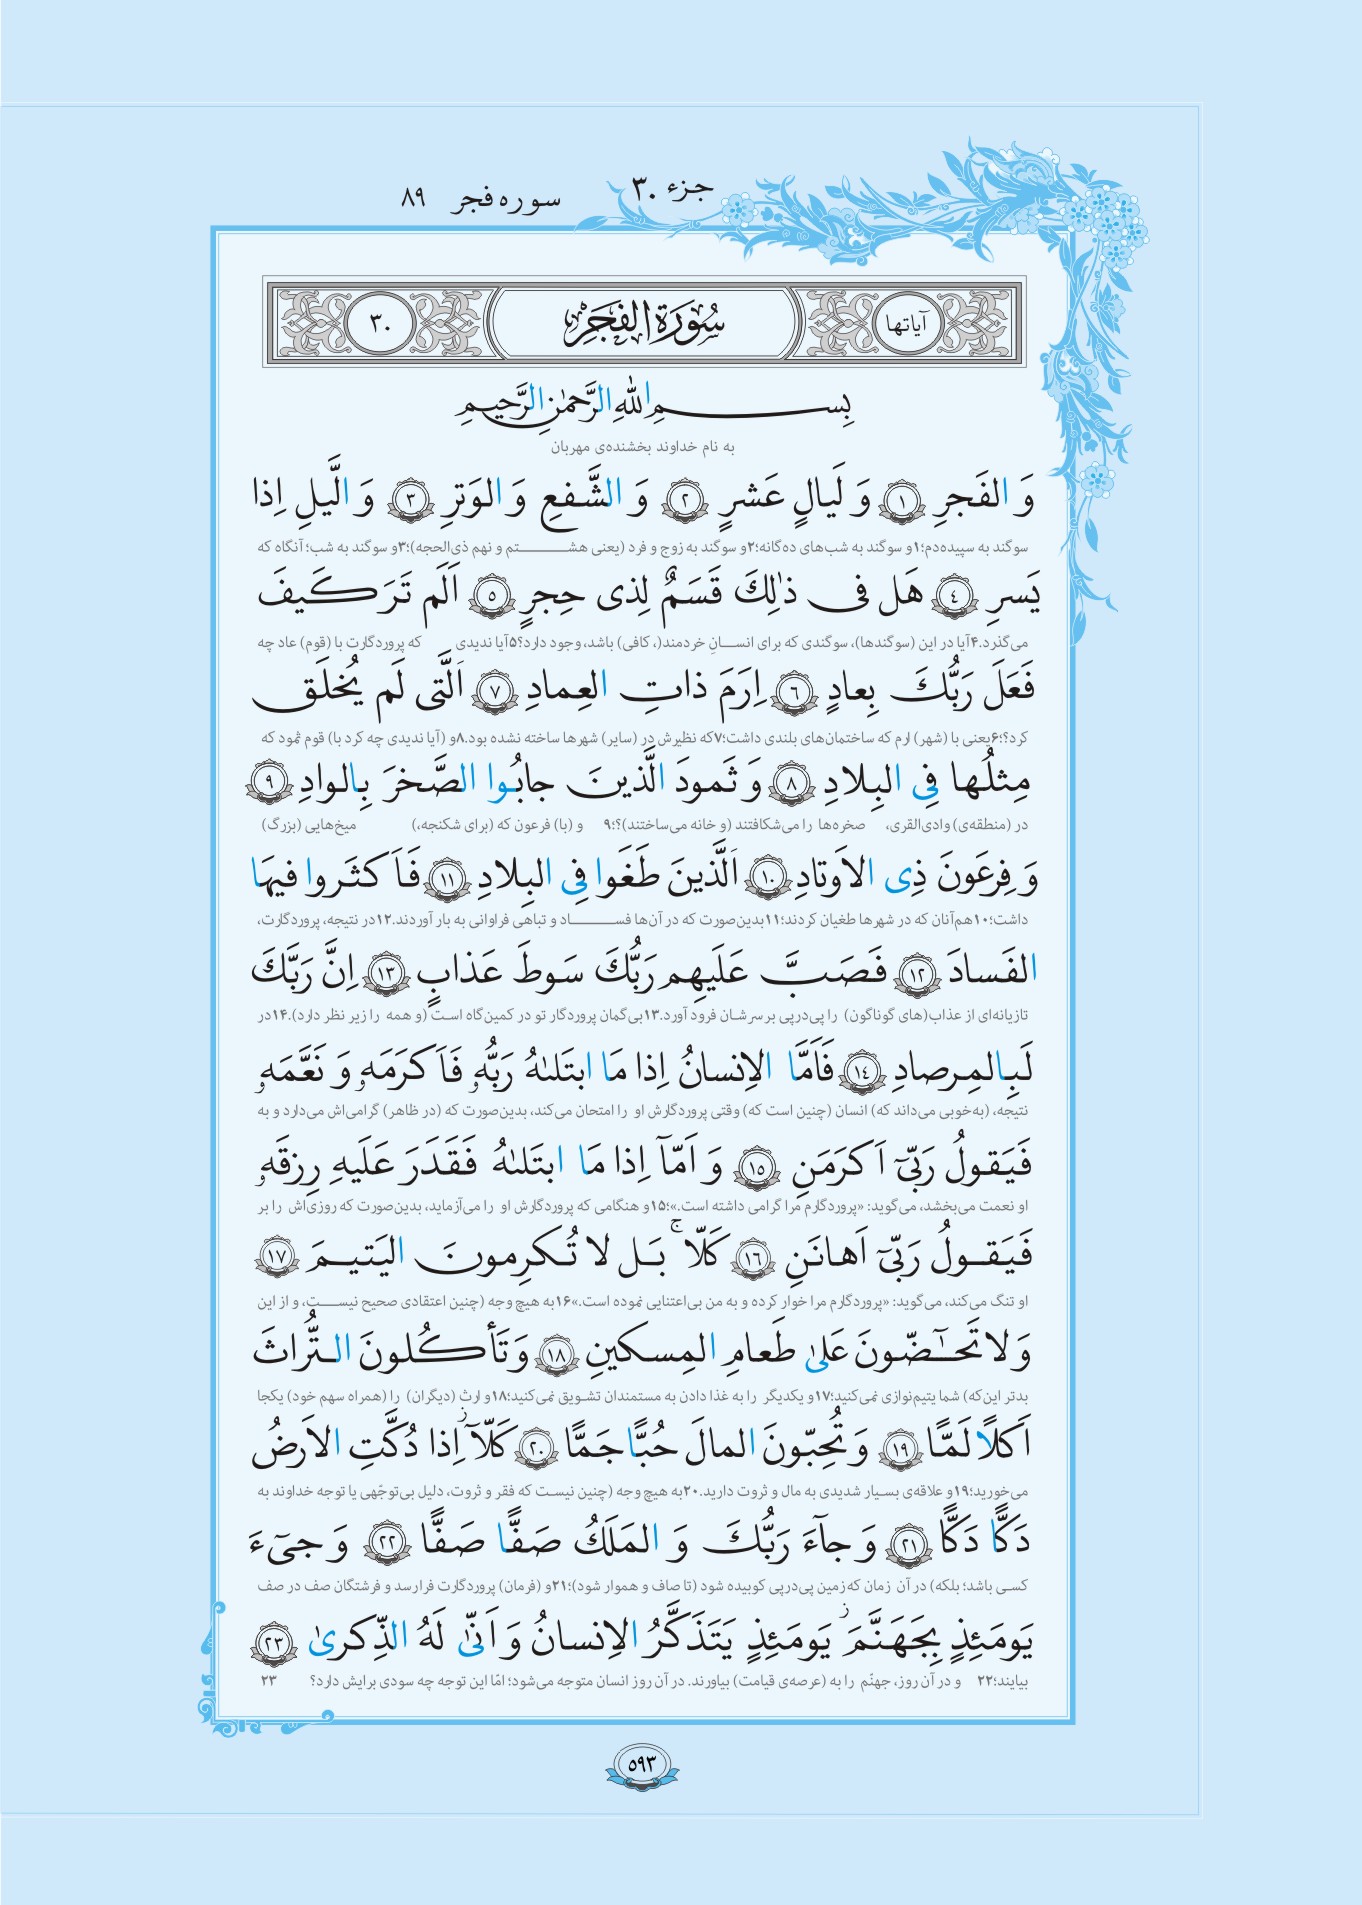 جزء ۳۰
سوره فجر ۸۹
آیاتها
سُورَةُ الفَجْرِ
۳۰
بِسمِ اللهِ الرَّحمٰنِ الرَّحیمِ
به نام خداوند بخشنده‌ی مهربان
وَ الفَجرِ ﴿١﴾ وَ لَیالٍ عَشرٍ ﴿٢﴾ وَ الشَّفعِ وَ الوَترِ ﴿٣﴾ وَ الَّیلِ اِذا
سوگند به سپیده‌دم؛۱و سوگند به شب‌های ده‌گانه؛۲و سوگند به زوج و فرد (یعنی هشـتم و نهم ذی‌الحجه)؛۳و سوگند به شب؛ آنگاه که
یَسرِ ﴿٤﴾ هَل فی ذٰلِكَ قَسَمٌ لِذی حِجرٍ ﴿٥﴾ اَلَم تَرَ کَیفَ
می‌گذرد.۴آیا در این (سوگندها)، سوگندی که برای انسـانِ خردمند(، کافی) باشد، وجود دارد؟۵آیا ندیدی که پروردگارت با (قوم) عاد چه
فَعَلَ رَبُّكَ بِعادٍ ﴿٦﴾ اِرَمَ ذاتِ العِمادِ ﴿٧﴾ اَلَّتی لَم یُخلَق
کرد؟؛۶یعنی با (شهر) ارم که ساختمان‌های بلندی داشت؛۷که نظیرش در (سایر) شهرها ساخته نشده بود.۸و (آیا ندیدی چه کرد با) قوم ثمود که
مِثلُها فِی البِلادِ ﴿٨﴾ وَ ثَمودَ الَّذینَ جابُوا الصَّخرَ بِالوادِ ﴿٩﴾
در (منطقه‌ی) وادی‌القری، صخره‌ها را می‌شکافتند (و خانه می‌ساختند)؟؛۹ و (با) فرعون که (برای شکنجه،) میخ‌هایی (بزرگ)
وَ فِرعَونَ ذِی الاَوتادِ ﴿١٠﴾ اَلَّذینَ طَغَوا فِی البِلادِ ﴿١١﴾ فَاَکثَروا فیهَا
داشت؛۱۰هم‌آنان که در شهرها طغیان کردند؛۱۱بدین‌صورت که در آن‌ها فسـاد و تباهی فراوانی به بار آوردند.۱۲در نتیجه، پروردگارت،
الفَسادَ ﴿١٢﴾ فَصَبَّ عَلَیهِم رَبُّكَ سَوطَ عَذابٍ ﴿١٣﴾ اِنَّ رَبَّكَ
تازیانه‌ای از عذاب(های گوناگون) را پی‌درپی بر سرشـان فرود آورد.۱۳بی‌گمان پروردگار تو در کمین‌گاه اسـت (و همه را زیر نظر دارد).۱۴در
لَبِالمِرصادِ ﴿١٤﴾ فَاَمَّا الاِنسانُ اِذا مَا ابتَلىٰهُ رَبُّهٗ فَاَکرَمَهٗ وَ نَعَّمَهٗ
نتیجه، (به‌خوبی می‌داند که) انسان (چنین است که) وقتی پروردگارش او را امتحان می‌کند، بدین‌صورت که (در ظاهر) گرامی‌اش می‌دارد و به
فَیَقولُ رَبّیٓ اَکرَمَنِ ﴿١٥﴾ وَ اَمّآ اِذا مَا ابتَلىٰهُ فَقَدَرَ عَلَیهِ رِزقَهٗ
او نعمت می‌بخشد، می‌گوید: «پروردگارم مرا گرامی داشته است.»؛۱۵و هنگامی که پروردگارش او را می‌آزماید، بدین‌صورت که روزی‌اش را بر
فَیَقولُ رَبّیٓ اَهانَنِ ﴿١٦﴾ کَلّا ۚ بَل لا تُکرِمونَ الیَتیمَ ﴿١٧﴾
او تنگ می‌کند، می‌گوید: «پروردگارم مرا خوار کرده و به من بی‌اعتنایی نموده است.»۱۶به هیچ وجه (چنین اعتقادی صحیح نیسـت، و از این
وَ لا تَحـٰٓضّونَ عَلىٰ طَعامِ المِسکینِ ﴿١٨﴾ وَ تَأکُلونَ التُّراثَ
بدتر این‌که) شما یتیم‌نوازی نمی‌کنید؛۱۷و یکدیگر را به غذا دادن به مستمندان تشویق نمی‌کنید؛۱۸و ارث (دیگران) را (همراه سهم خود) یکجا
اَکلًا لَمًّا ﴿١٩﴾ وَ تُحِبّونَ المالَ حُبًّا جَمًّا ﴿٢٠﴾ کَلّآ ؗ اِذا دُکَّتِ الاَرضُ
می‌خورید؛۱۹و علاقه‌ی بسـیار شدیدی به مال و ثروت دارید.۲۰به هیچ وجه (چنین نیسـت که فقر و ثروت، دلیل بی‌توجّهی یا توجه خداوند به
دَکًّا دَکًّا ﴿٢١﴾ وَ جآءَ رَبُّكَ وَ المَلَكُ صَفًّا صَفًّا ﴿٢٢﴾ وَ جیٓءَ
کسـی باشد؛ بلکه) در آن زمان که زمین پی‌درپی کوبیده شود (تا صاف و هموار شود)؛۲۱و (فرمان) پروردگارت فرارسد و فرشتگان صف در صف
یَومَئِذٍ بِجَهَنَّمَ ؗ یَومَئِذٍ یَتَذَکَّرُ الاِنسانُ وَ اَنّىٰ لَهُ الذِّکرىٰ ﴿٢٣﴾
بیایند؛۲۲ و در آن روز، جهنّم را به (عرصه‌ی قیامت) بیاورند. در آن روز انسان متوجه می‌شود؛ امّا این توجه چه سودی برایش دارد؟ ۲۳
۵۹۳